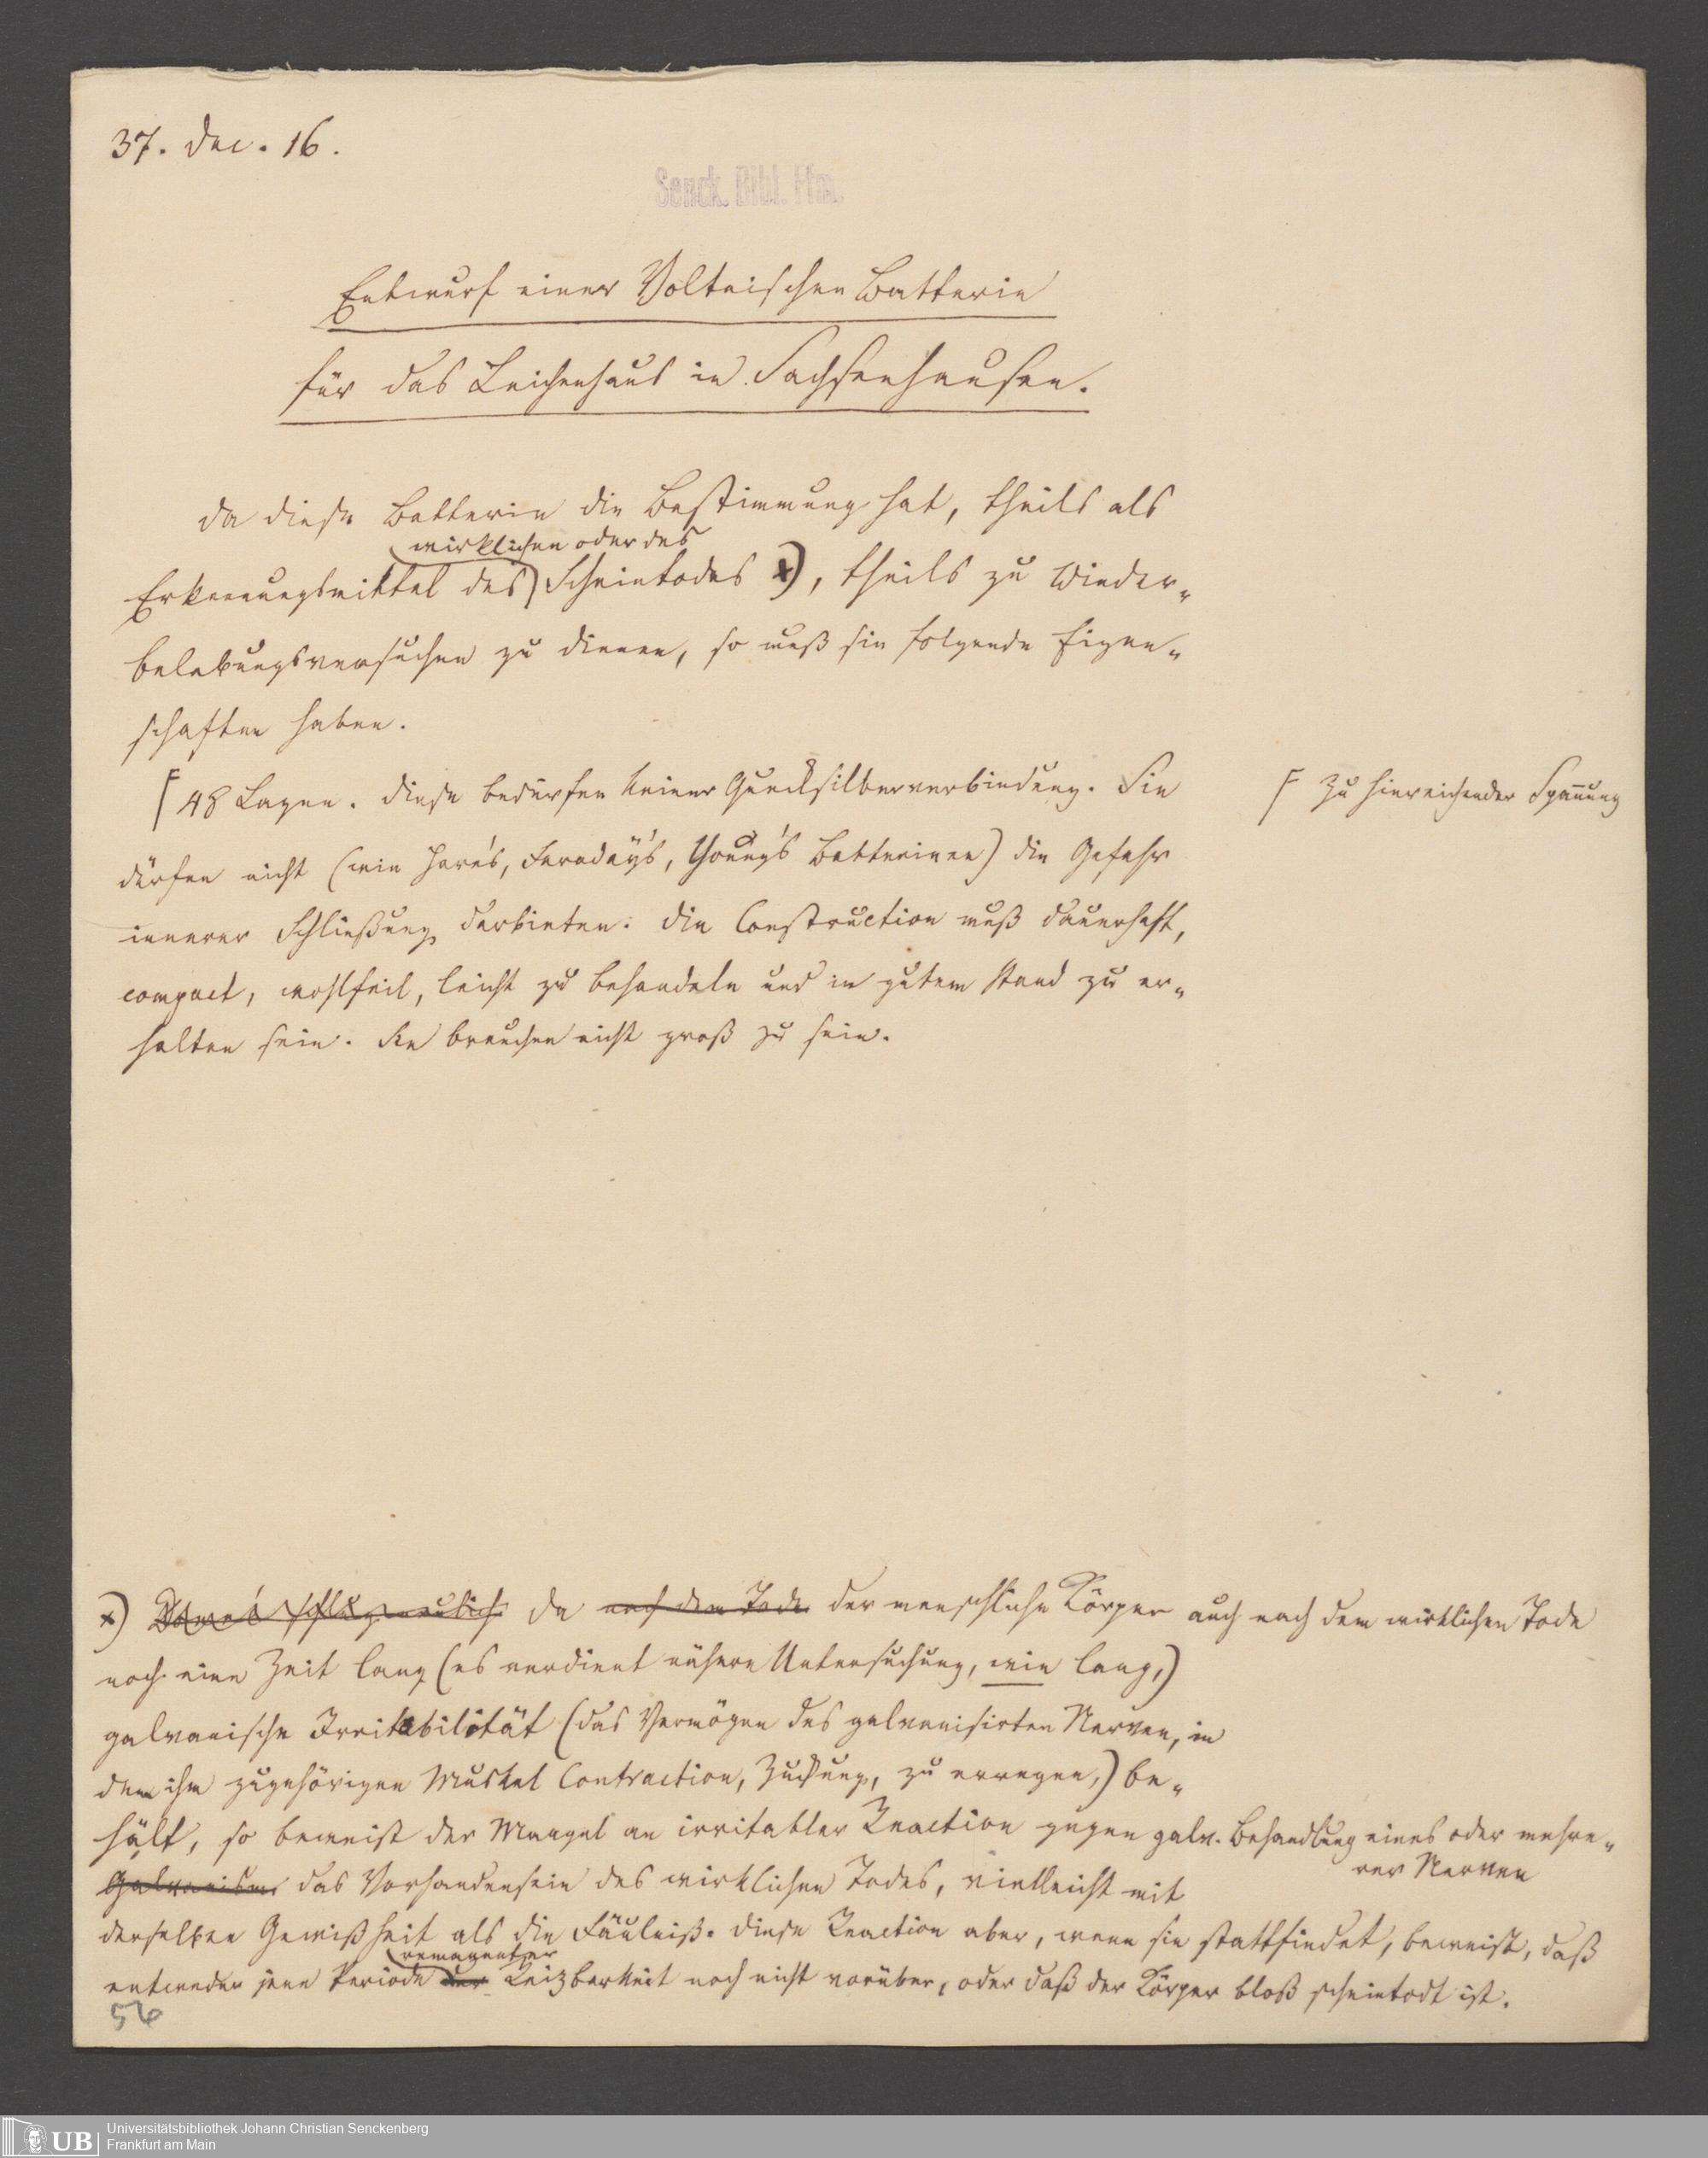 37. Dec. 16.
Senck. Bibl. Ffm.
Entwurf einer Voltaischen Batterie
für das Leichenhaus in Sachsenhausen.
Da diese Batterie die Bestimmung hat, theils als
wirklichen oder des
Erkennungsmittel des Scheintodes x), theils zu Wieder-
belebungsversuchen zu dienen, so muß sie folgende Eigen-
schaften haben.
Γ 48 Lagen. Diese bedürfen keiner Quecksilberverbindung. Sie
Γ Zu hinreichender Spannung
dürfen nicht (wie Hare's, Faraday's, Young's Batterieen) die Gefahr
innerer Schließung darbieten. Die Construction muß dauerhaft,
compact, wohlfeil, leicht zu behandeln und in gutem Stand zu er-
halten sein. Sie brauchen nicht groß zu sein.
x) Da nach dem Tode der menschliche Körper auch nach dem wirklichen Tode
noch eine Zeit lang (es verdient nähere Untersuchung, wie lang,)
galvanische Irritabilität (das Vermögen des galvanisirten Nerven, in
dem ihm zugehörigen Muskel Contraction, Zuckung, zu erregen,) be-
hält, so beweist der Mangel an irritabler Reaction gegen galv. Behandlung eines oder mehre-
rer Nerven
Galvanism. das Vorhandensein des wirklichen Todes, vielleicht mit
derselben Gewißheit als die Fäulniß. Diese Reaction aber, wenn sie stattfindet, beweist, daß
remanenter
entweder jene Periode der Reizbarkeit noch nicht vorüber, oder daß der Körper bloß scheintodt ist.
56
UB
Universitätsbibliothek Johann Christian Senckenberg
Frankfurt am Main